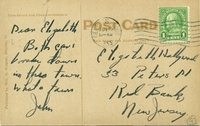 POST CARD
Dear Elizabeth
Both cars
broke down
in this town.
What a town
John
Elizabeth
33 Peters Pl
Red Bank
New Jersey
1